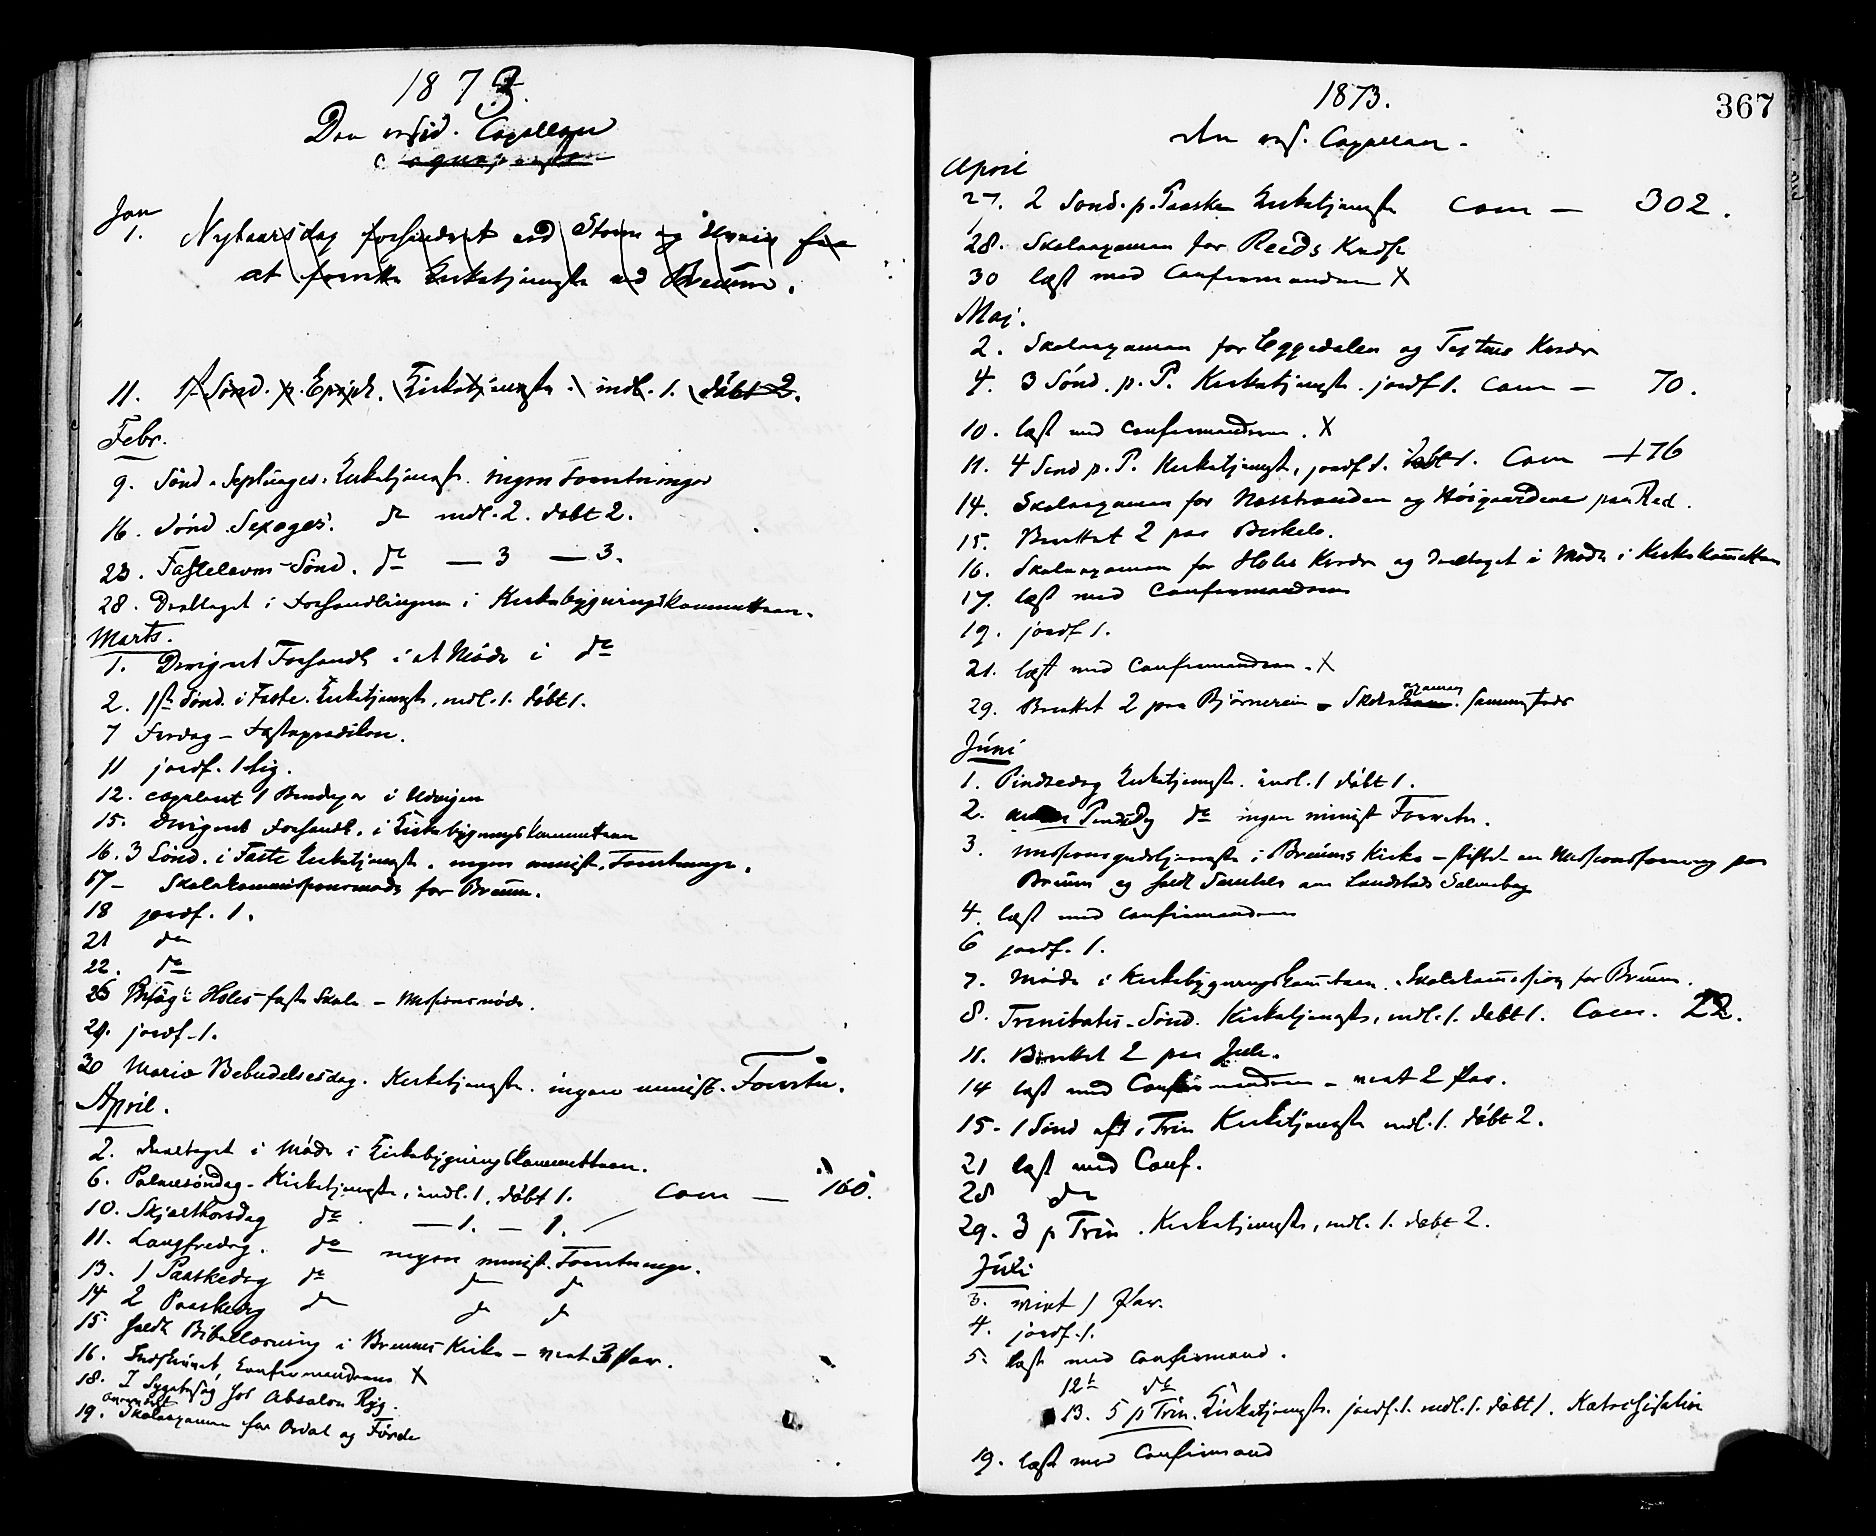 1873.
Den resid. Capellan
Jan
1. Nytaarsdag forhindret ved Storm og fra
at forrette Kirketjeneste ved Breum.
11. 1ste Sønd. p. Epiph. Kirketjeneste. indl. 1. døbt 2.
Febr.
9. Sønd. Septuages. Kirketjenest. ingen Forretninger
16. Sønd. Sexages. do indl. 2. døbt 2.
23. Fastelavns-Sønd. do — 3 — 3.
28. Deeltaget i Forhandlingerne i Kirkebygningskommitteen.
Marts.
1. Dirigeret Forhandl i et Møde i do
2. 1ste Sønd. i Faste. Kirketjeneste, indl. 1. døbt 1.
7 Fredag – Fasteprædiken.
11 jordf. 1 Lig.
12. copuleret 1 Brudepar i Udvigen
15. Dirigeret Forhandl. i Kirkebygningskommitteen
16. 3 Sønd. i Faste Kirketjeneste. ingen minist. Forretninger.
17 – Skolekommissionsmøde for Breum.
18 jordf. 1.
21 do
22. do
26 Besøgt Holes faste Skole – Missionsmøde.
29. jordf. 1.
30 Mariæ Bebudelsesdag. Kirketjeneste. ingen minist. Forretn.
April.
2. deeltaget i Møde i Kirkebygningskommitteen.
6. Palmesøndag – Kirketjeneste, indl. 1. døbt 1. Com — 160.
10. Skjærthorsdag do. — 1. – 1.
11. Langfredag. do ingen minist. Forretninger.
13. 1 Paaskedag do do do
14 2 Paaskedag do do do
15. holdt Bibellæsning i Breums Kirke – viet 3 Par.
16. Indskrevet Confirmanderne X
18. I Sygebesøg hos Absalon Ryg.
anmeldt
19. Skoleexamen for Ordal og Førde
1873.
367
den res. Capellan.
April
27. 2 Sønd. p. Paaske Kirketjeneste Com — 302.
28. Skoleexamen for Reeds Kreds
30 læst med Confirmanderne X
Mai.
2. Skoleexamen for Eggedalen og Kreds
4. 3 Sønd. p. P. Kirketjeneste. jordf 1. Com — 70.
10. læst med Confirmanderne. X
11. 4 Sønd p. P. Kirketjenest, jordf 1. døbt 1. Com — 176
14. Skoleexamen for Nosstranden og Høigaardene paa Red.
15. Berettet 2 paa Birkelo.
16. Skoleexamen for Holes Kreds og deeltaget i Møde i Kirkekomitteen
17. læst med Confirmanderne
19. jordf 1.
21. læst med Confirmanderne. X
examen
29. Berettet 2 paa Bjørnereim – Skole sammesteds
Juni
1. Pindsedag Kirketjeneste. indl. 1 døbt 1.
2. anden Pindsedag do ingen minist Forretn.
3. Missionsgudstjeneste i Breums Kirke – stiftet en Missionsforening paa
Breum og holdt Samtale om Landstads Salmebog
4. læst med Confirmanderne
6 jordf. 1.
7. Møde i Kirkebygningskomiteen. Skolekommission for Breum.
8. Trinitatis-Sønd. Kirketjeneste, indl. 1. døbt 1. Com. 22.
11. Berettet 2 paa Hole.
14 læst med Confirmanderne – viet 2 Par.
15. 1 Sønd eft. Trin Kirketjeneste indl. 1. døbt 2.
21 læst med Conf.
28 do
29. 3 p Trin. Kirketjeneste, indl. 1. døbt 2.
Juli
3. viet 1 Par.
4. jordf. 1.
5. læst med Confirmand.
12te do
13. 5 p Trin. Kirketjeneste. jordf. 1. indl. 1. døbt 1. Katechisation
19. læst med Confirmand